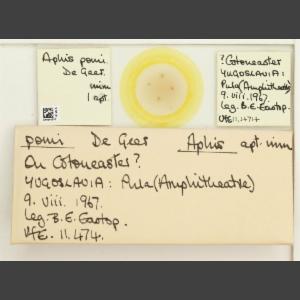 Aphis pomi.
De Geer.
imm
1 apt.
?Cotoneaster
YUGOSLAVIA:
Pula(Amphitheatre)
9. viii. 1967.
Leg. B.E. Eastop.
VfE 11,474
pomi De Geer Aphis apt. imm
On Cotoneaster?
YUGOSLAVIA: Pula (Amphitheatre)
9. viii. 1967.
Leg. B.E. Eastop.
VfE. 11.474.